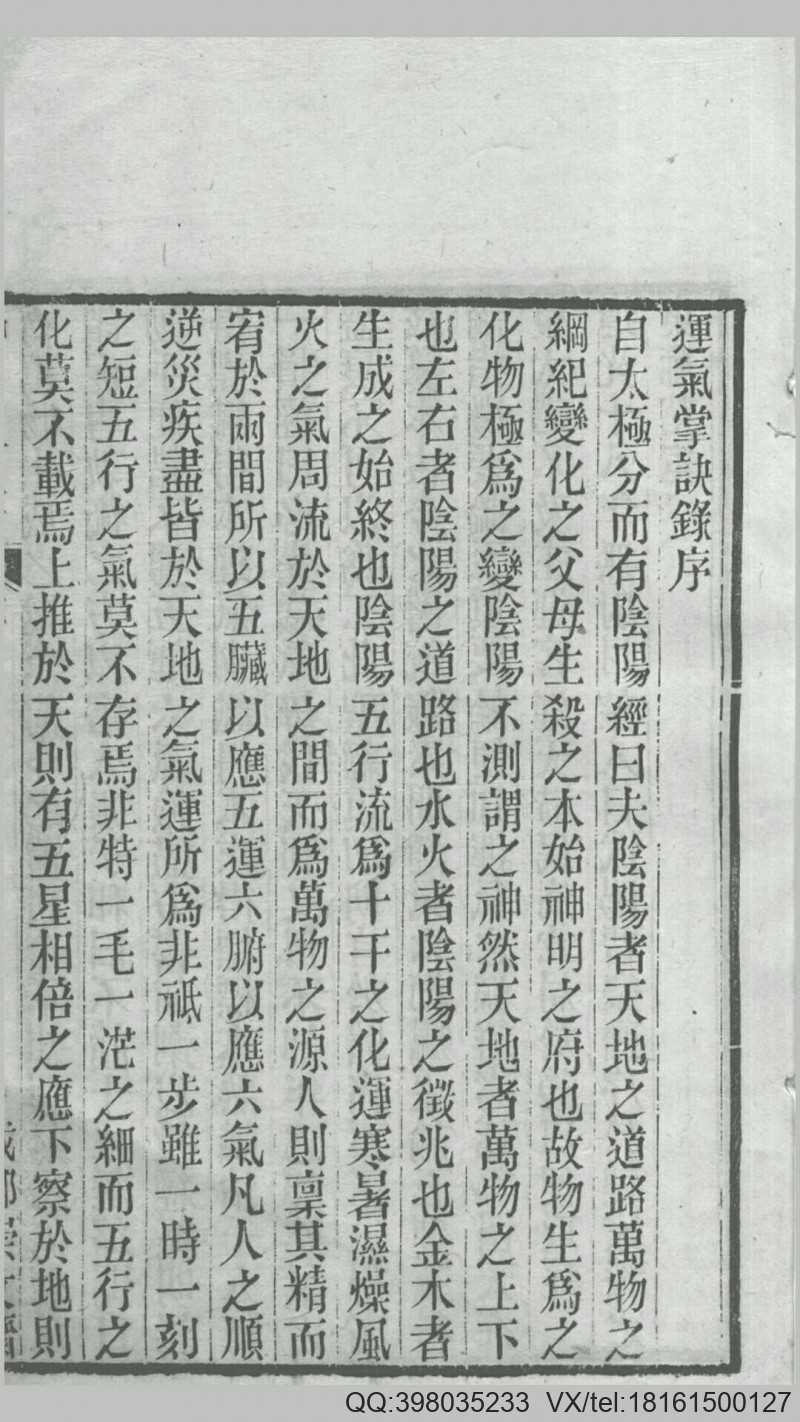 運氣掌訣錄序
自太極分而有陰陽經曰夫陰陽者天地之道路萬物之
綱紀變化之父母生殺之本始神明之府也故物生爲之
化物極爲之變陰陽不測謂之神然天地者萬物之上下
也左右者陰陽之道路也水火者陰陽之徵兆也金木者
生成之始終也陰陽五行流爲十干之化運寒暑濕燥風
火之氣周流於天地之間而爲萬物之源人則稟其精而
宥於兩間所以五臟以應五運六腑以應六氣凡人之順
逆災疾盡皆於天地之氣運所爲非祗一步雖一時一刻
之短五行之氣莫不存焉非特一毛一茫之細而五行之
化莫不載焉上推於天則有五星相倍之應下察於地則
QQ:398035233 VX/tel:18161500127